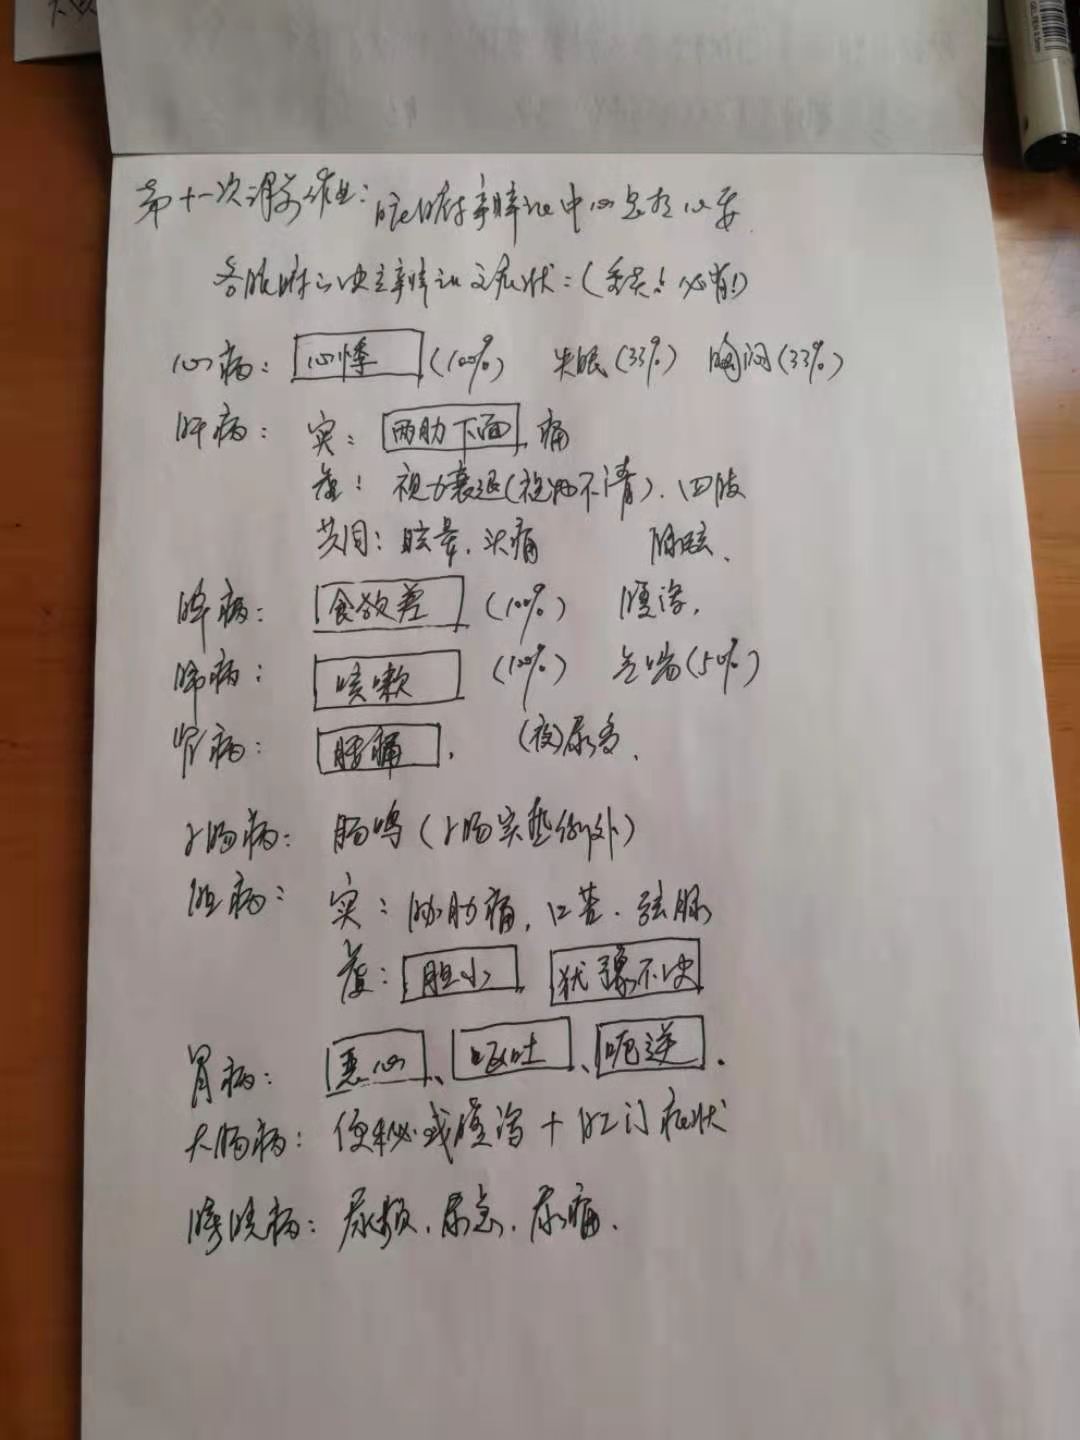 第十一次课前作业：脏腑辨证中心思想
各脏腑决主辨证之症状：（重点！必背！）
心病：心悸（100%） 失眠（33%） 胸闷（33%）
肝病：实：两肋下面，痛
虚：视力衰退（视物不清）．四肢
共同：眩晕．头痛 脉弦、
脾病：食欲差（100%） 腹泻，
肺病：咳嗽（100%） 气喘（50%）
肾病：腰痛．（夜）尿多、
小肠病：肠鸣（小肠实热例外）
胆病：实：胁肋痛，口苦．弦脉
虚：胆小，犹豫不决
胃病：恶心、呕吐、呃逆．
大肠病：便秘或腹泻＋肛门症状
膀胱病：尿频．尿急．尿痛．